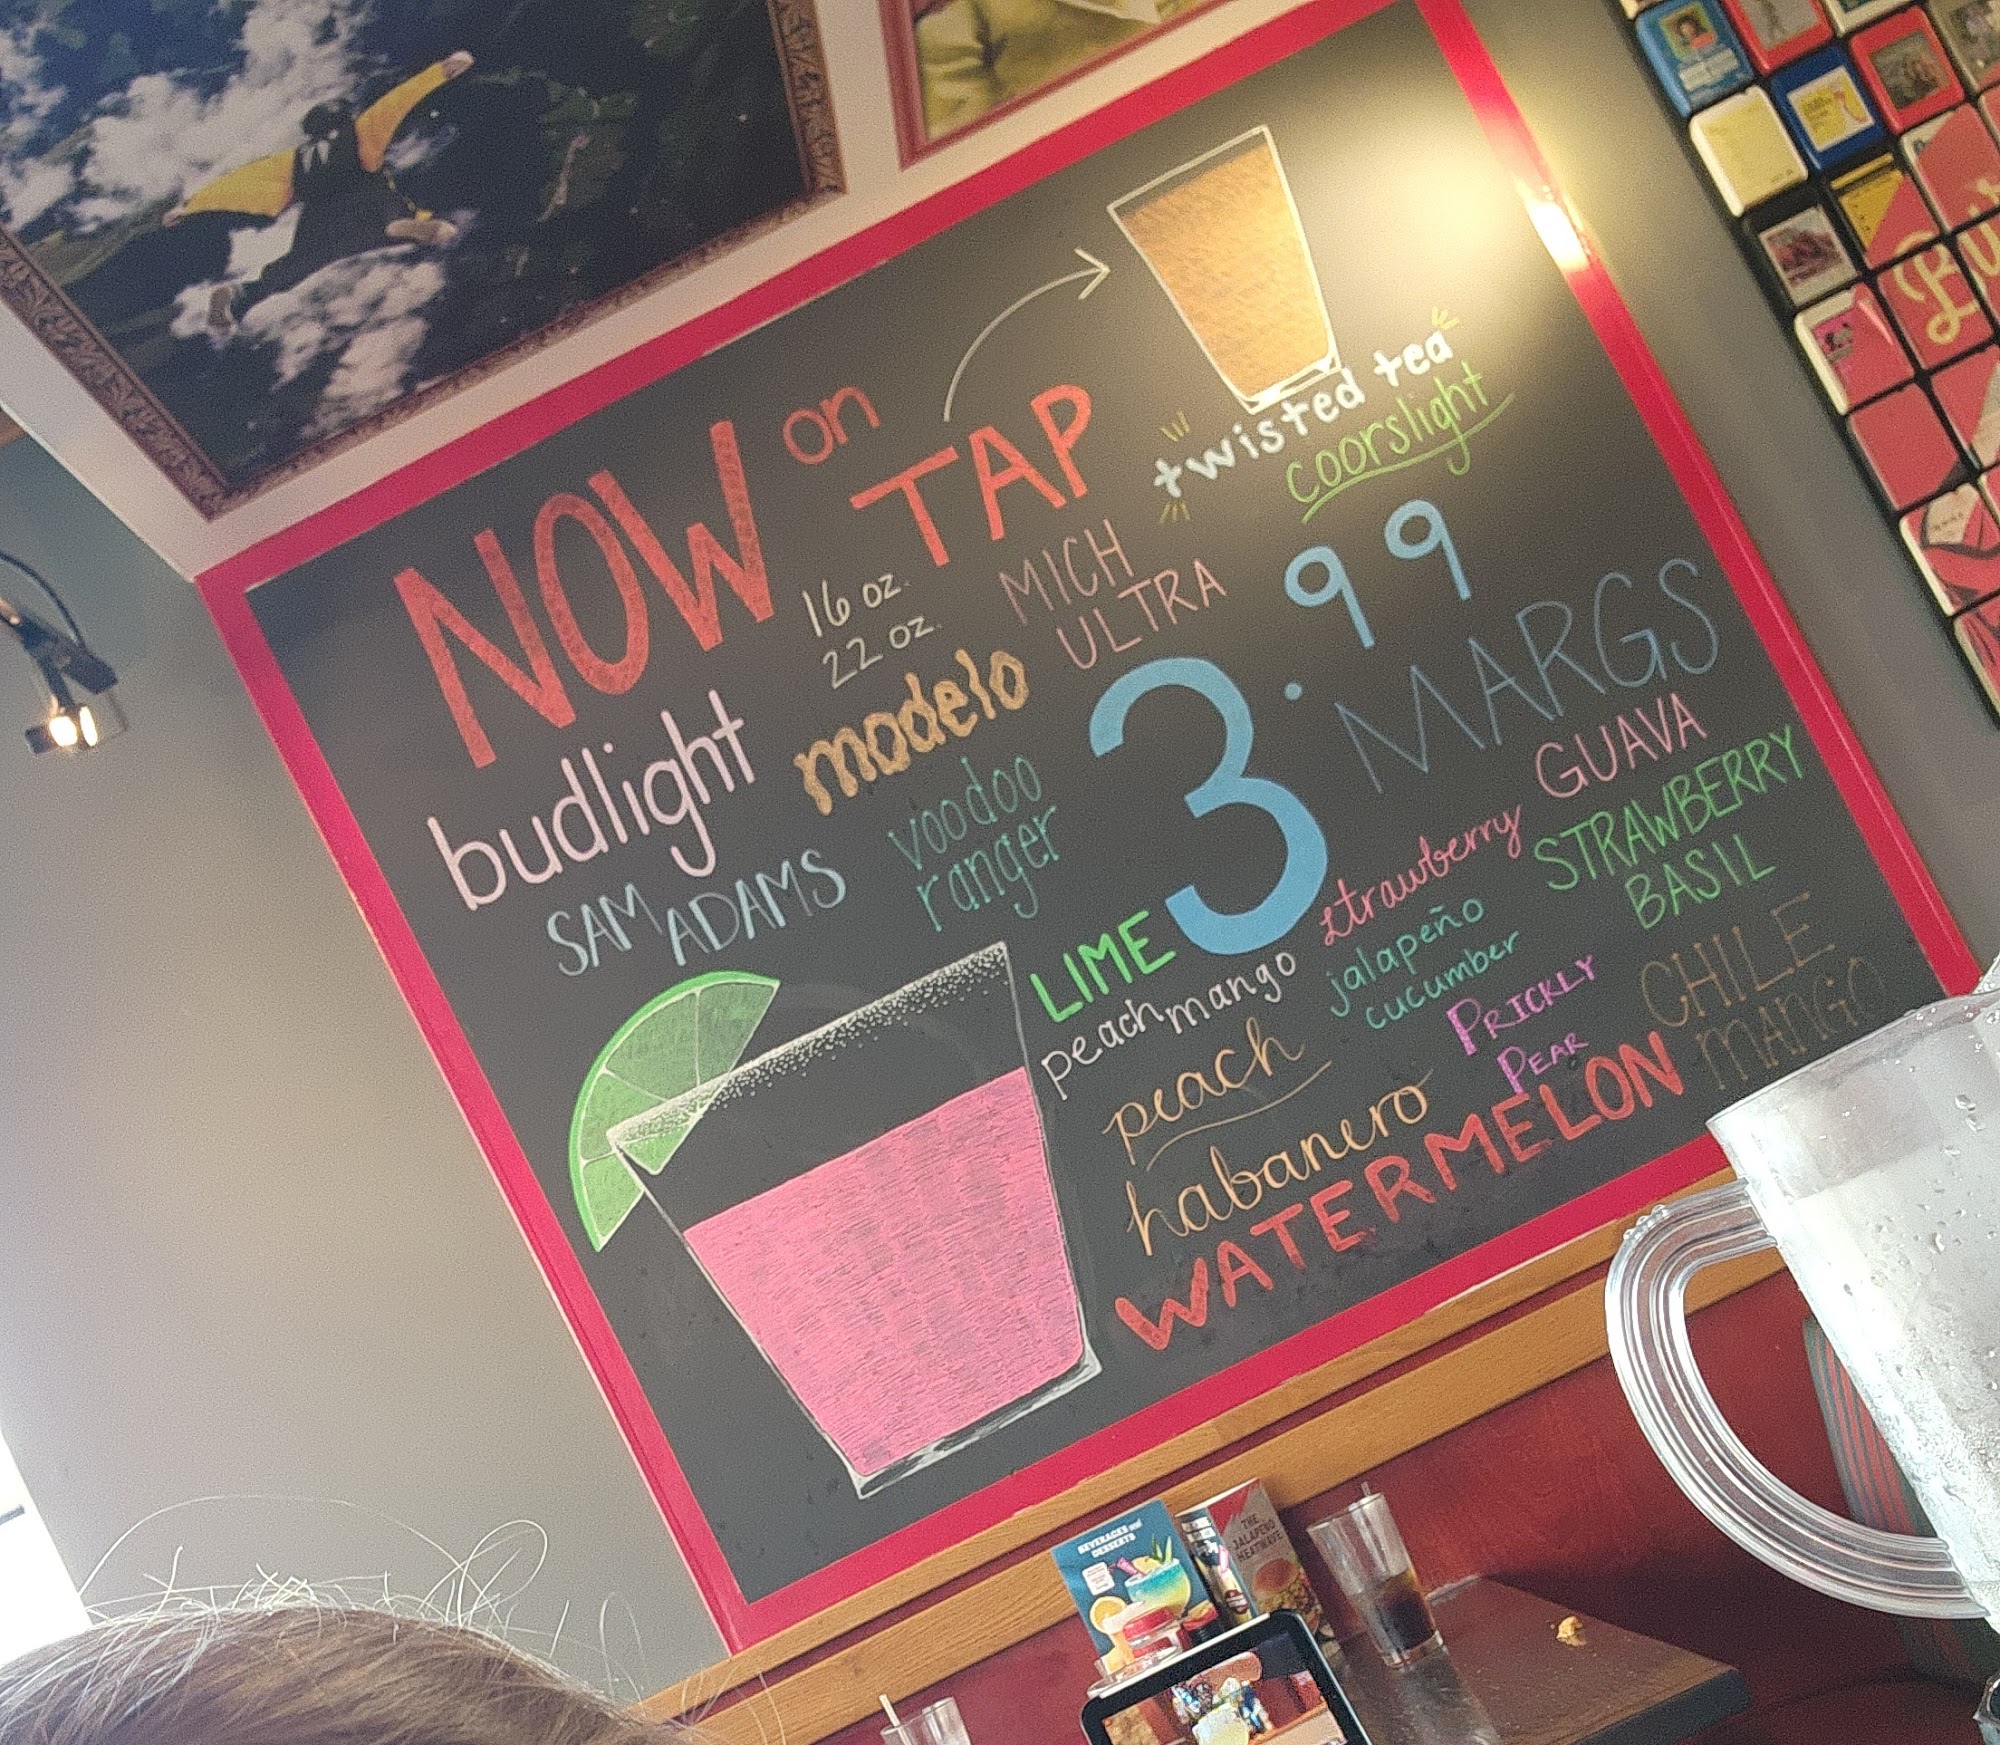 NOW on
TAP
twisted tea
coorslight
16 oz.
22 oz.
MICH
ULTRA
budlight
modelo
SAM
ADAMS
voodoo
ranger
3.99
MARGS
LIME
strawberry
GUAVA
peach mango
jalapeño
cucumber
STRAWBERRY
BASIL
peach
PRICKLY
PEAR
CHILE
MANGO
habanero
WATERMELON
BEVERAGES and
DESSERTS
THE
JALAPEÑO
HEATWAVE